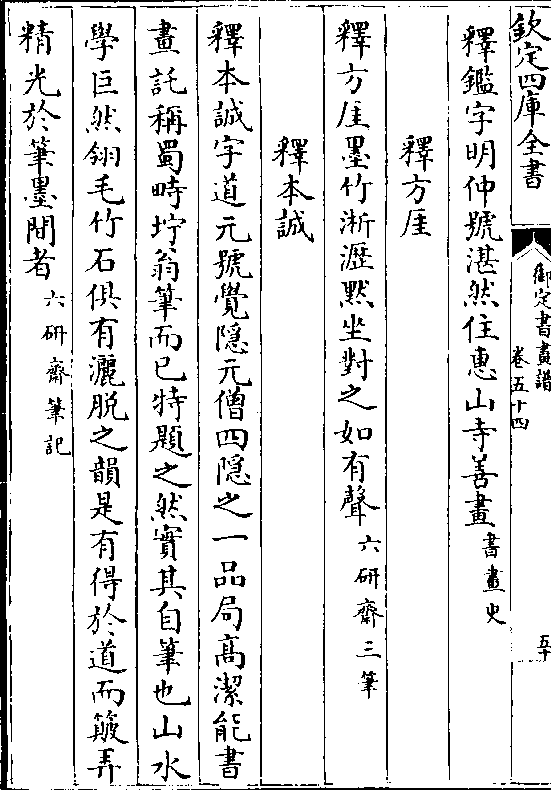 欽定四庫全書
御定書畫譜
卷五十四
五十
釋鑑字明仲號湛然住惠山寺善畫書畫史
釋方厓
釋方厓墨竹淅瀝默坐對之如有聲六研齋三筆
釋本誠
釋本誠字道元號覺隱元僧四隱之一品局高潔能書
畫託稱蜀時垨翁筆而已特題之然實其自筆也山水
學巨然翎毛竹石俱有灑脱之韻是有得於道而簸弄
精光於筆墨間者六研齋筆記